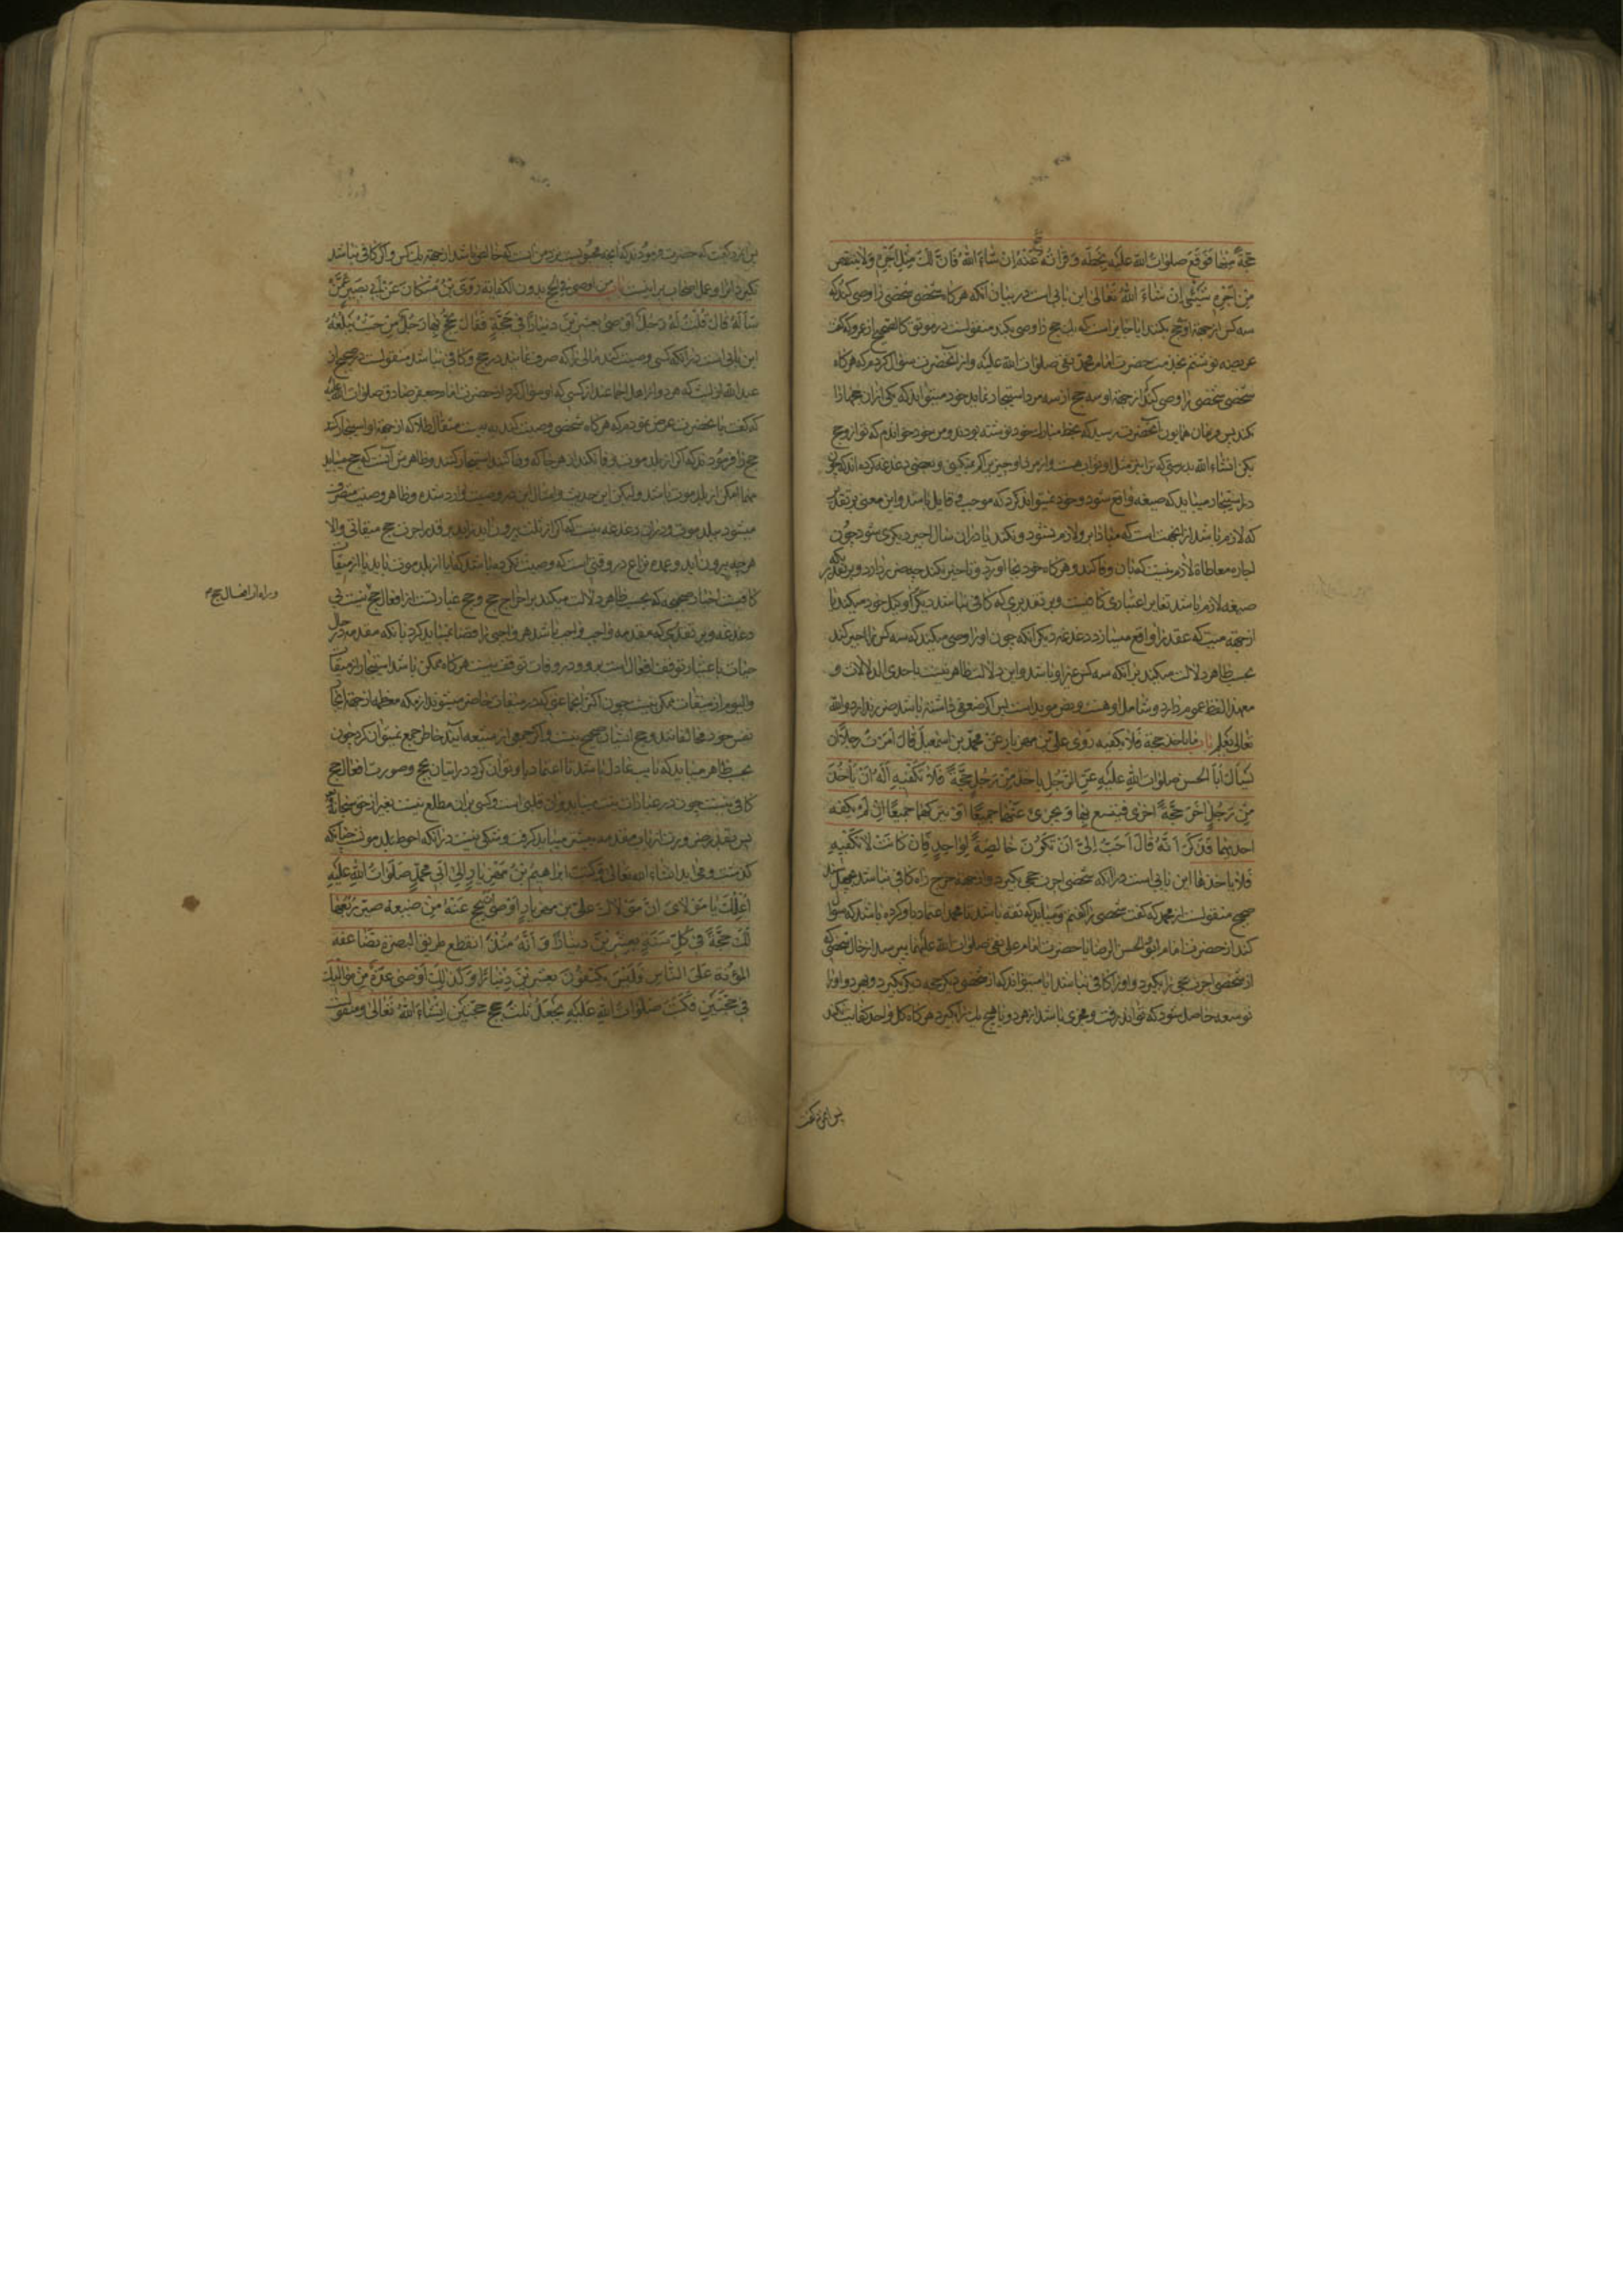 حجة منها فوقع صلوات الله علیه بخطه وقرأته حج عنه ان شاء الله فان لك مثل اجره ولا ینقص
من اجره شیئ ان شاء الله تعالی این بابی است در بیان آنکه هرگاه شخصی شخصی را وصی کند که
سه کس از جهة او حج بکنند ایا جایز است که یك حج را وصی بکند منقولست در موثق کالصحیح از عمرو که گفت
عریضه نوشتم بخدمت حضرت امام محمد تقی صلوات الله علیه واز آنحضرت سؤال کردم که هرگاه
شخصی شخصی را وصی کند از جهة او سه حج از سه مرد استیجار نماید خود میتواند که یکی از ان حجها را
بکند پس فرمان همایون آنحضرت رسید که بخط مبارك خود نوشته بودند ومن خود خواندم که تو از او حج
بکن انشاء الله بدرستی که ترا نیز مثل او ثواب هست واز مزد او چیزی کم نمیکنی وبعضی دغدغه کرده اند که چون
در استیجار میباید که صیغه واقع شود وخود نمیتواند کرد که موجب وقابل باشد واین معنی بر تقدیر
که لازم باشد از انجهت است که مبادا بر او لازم نشود ونکند یا در ان سال اجیر دیگری شود چون
اجاره معاطاة لازم نیست که بان وفا کند وهرگاه خود بجا آورد وتاخیر نکند چه ضرر دارد وبر تقدیر که
صیغه لازم باشد تغایر اعتباری کافیست وبر تقدیری که کافی نباشد دیگری را وکیل خود میکند یا
از جهة میت که عقد را واقع میسازد دغدغه دیگر آنکه چون او را وصی میکند که سه کس را اجیر کند
بحسب ظاهر دلالت میکند بر آنکه سه کس غیر او باشد واین دلالت ظاهر نیست باحدی الدلالات و
معهذا لفظ عموم دارد وشامل او هست ونص موید است پس اگر ضعفی داشته باشد ضرر ندارد والله
تعالی یعلم باب من یاخذ حجة فلا تکفیه روی علی بن مهزیار عن محمد بن اسمعیل قال امرت رجلا ان
یسأل ابا الحسن صلوات الله علیه عن الرجل یاخذ من رجل حجة فلا تکفیه أله ان یأخذ
من رجل آخر حجة اخری فیتسع بها ویجزی عنهما جمیعا او یترکهما جمیعا ان لم یکفه
احدیهما فذکر انه قال احب الی ان تکون خالصة لواحد فان کانت لا تکفیه
فلا یاخذها این بابی است در آنکه شخصی اجرت حجی بگیرد واز جهة خرج راه کافی نباشد
صحیح منقولست از محمد که گفت شخصی را گفتم ومیباید که ثقه باشد تا محمد اعتماد باو کرده باشد که سؤال
کند از حضرت امام ابو الحسن الرضا یا حضرت امام علی نقی صلوات الله علیهما بپرسد از حال شخصی که
از شخصی اجرت حجی را بگیرد واو را کافی نباشد ایا میتواند که از شخص دیگر حجه دیگر بگیرد وبهر دو او را
توسعه حاصل شود که تواند رفت ومجزی باشد از هر دو یا هیچ یك را نگیرد هرگاه کل واحد کفایت نکند
پس آن مرد گفت
پس آن مرد گفت که حضرت فرمودند که آنچه محبوبست نزد من آنست که خالص باشد از جهة یك کس واگر کافی نباشد
نگیرد انرا وعمل اصحاب بر اینست باب من اوصی فی الحج بدون الکفایة روی ابن مسکان عن ابی بصیر عمن
سأله قال قلت له رجل اوصی بعشرین دینارا فی حجة فقال یحج بها رجل من حیث یبلغه
این بابی است در آنکه کسی وصیت کند مالی را که صرف نمایند در حج وکافی نباشد منقولست در صحیح از
عبد الله او لیث که هر دو از اهل اجماعند از کسی که او سؤال کرد از حضرت امام جعفر صادق صلوات الله علیه
که گفت بانحضرت عرض نمودم که هرگاه شخصی وصیت کند به بیست مثقال طلا که از جهة او استیجار کنند
حج را فرمودند که اگر از بلد موت وفا نکند از هر جا که وفا کند استیجار کنند وظاهرش آنست که حج میباید
مهما امکن از بلد موت باشد ولیکن این حدیث وامثال این در وصیت وارد شده وظاهر وصیت منصرف
میشود ببلد موت ودر ان دغدغه نیست که اگر از ثلث بیرون آید زاید بر قدر اجرت حج میقاتی والا
هر چه بیرون آید وعمده نزاع در وقتی است که وصیت نکرده باشد که ایا از بلد موت باید یا از میقات
کافیست اخبار صحیحه که بحسب ظاهر دلالت میکند بر اخراج حج وحج عبارتست از افعال حج نیست بی
وراه از افعال حج م
دغدغه وبر تقدیری که مقدمه واجب واجب باشد هر واجبی را قضا نمیباید کرد بانکه مقدمه در حال
حیات باعتبار توقف افعال است برو ودر وفات توقف نیست هرگاه ممکن باشد استیجار از میقات
والیوم از میقات ممکن نیست چون اکثر جماعتی که در میقات حاضر میشوند از مکه معظمه از جهة انجا
نفس خود مخالفانند وحج ایشان صحیح نیست واگر جمعی از شیعه آیند خاطر جمع نمیتوان کرد چون
بحسب ظاهر میباید که نایب عادل باشد تا اعتماد باو توان کرد در اتیان بحج وصورت افعال حج
کافی نیست چون در عبادات نیت میباید وان قلبی است وکسی بران مطلع نیست بغیر از حق سبحانه
پس بقدر ضرورت از باب مقدمه بیشتر میباید گرفت وشکی نیست در آنکه احوط بلد موتست چنانکه
گذشت ومی آید انشاء الله تعالی وکتب ابراهیم بن مهزیار الی ابی محمد صلوات الله علیه
اعلمك یا مولای ان مولاك علی بن مهزیار اوصی ان یحج عنه من ضیعة صیر ربعها
لك حجة فی کل سنة بعشرین دینارا وانه منذ انقطع طریق البصرة تضاعفة
المؤنة علی الناس فلیس یکتفون بعشرین دینارا وکذلك اوصی عدة من موالیك
فی حجتین فکتب صلوات الله علیه یجعل ثلث حجج حجتین انشاء الله تعالی ومنقولست